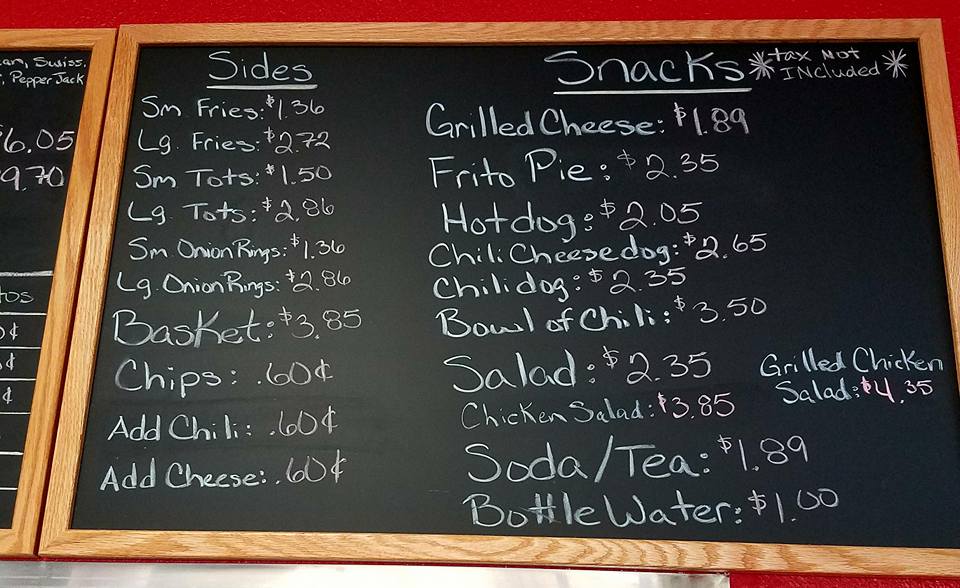 Swiss,
Pepper Jack
6.05
9.70
Sides
Sm Fries: $1.36
Lg. Fries: $2.72
Sm Tots: $1.50
Lg. Tots: $2.86
Sm Onion Rings: $1.36
Lg. Onion Rings: $2.86
Basket: $3.85
Chips: .60¢
Add Chili: .60¢
Add Cheese: .60¢
Snacks
*tax Not
INcluded*
Grilled Cheese: $1.89
Frito Pie: $2.35
Hotdog: $2.05
Chili Cheese dog: $2.65
Chili dog: $2.35
Bowl of Chili: $3.50
Salad: $2.35
Chicken Salad: $3.85
Grilled Chicken
Salad: $4.35
Soda/Tea: $1.89
Bottle Water: $1.00